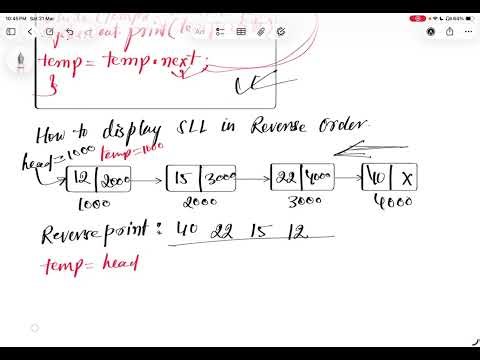 10:45 PM Sat 21 Mar
64%
temp = temp.next;
}
How to display SLL in Reverse Order.
head=1000 temp=1000
12 2000 15 3000 22 4000 40 X
1000 2000 3000 4000
Reverse print : 40 22 15 12
temp = head